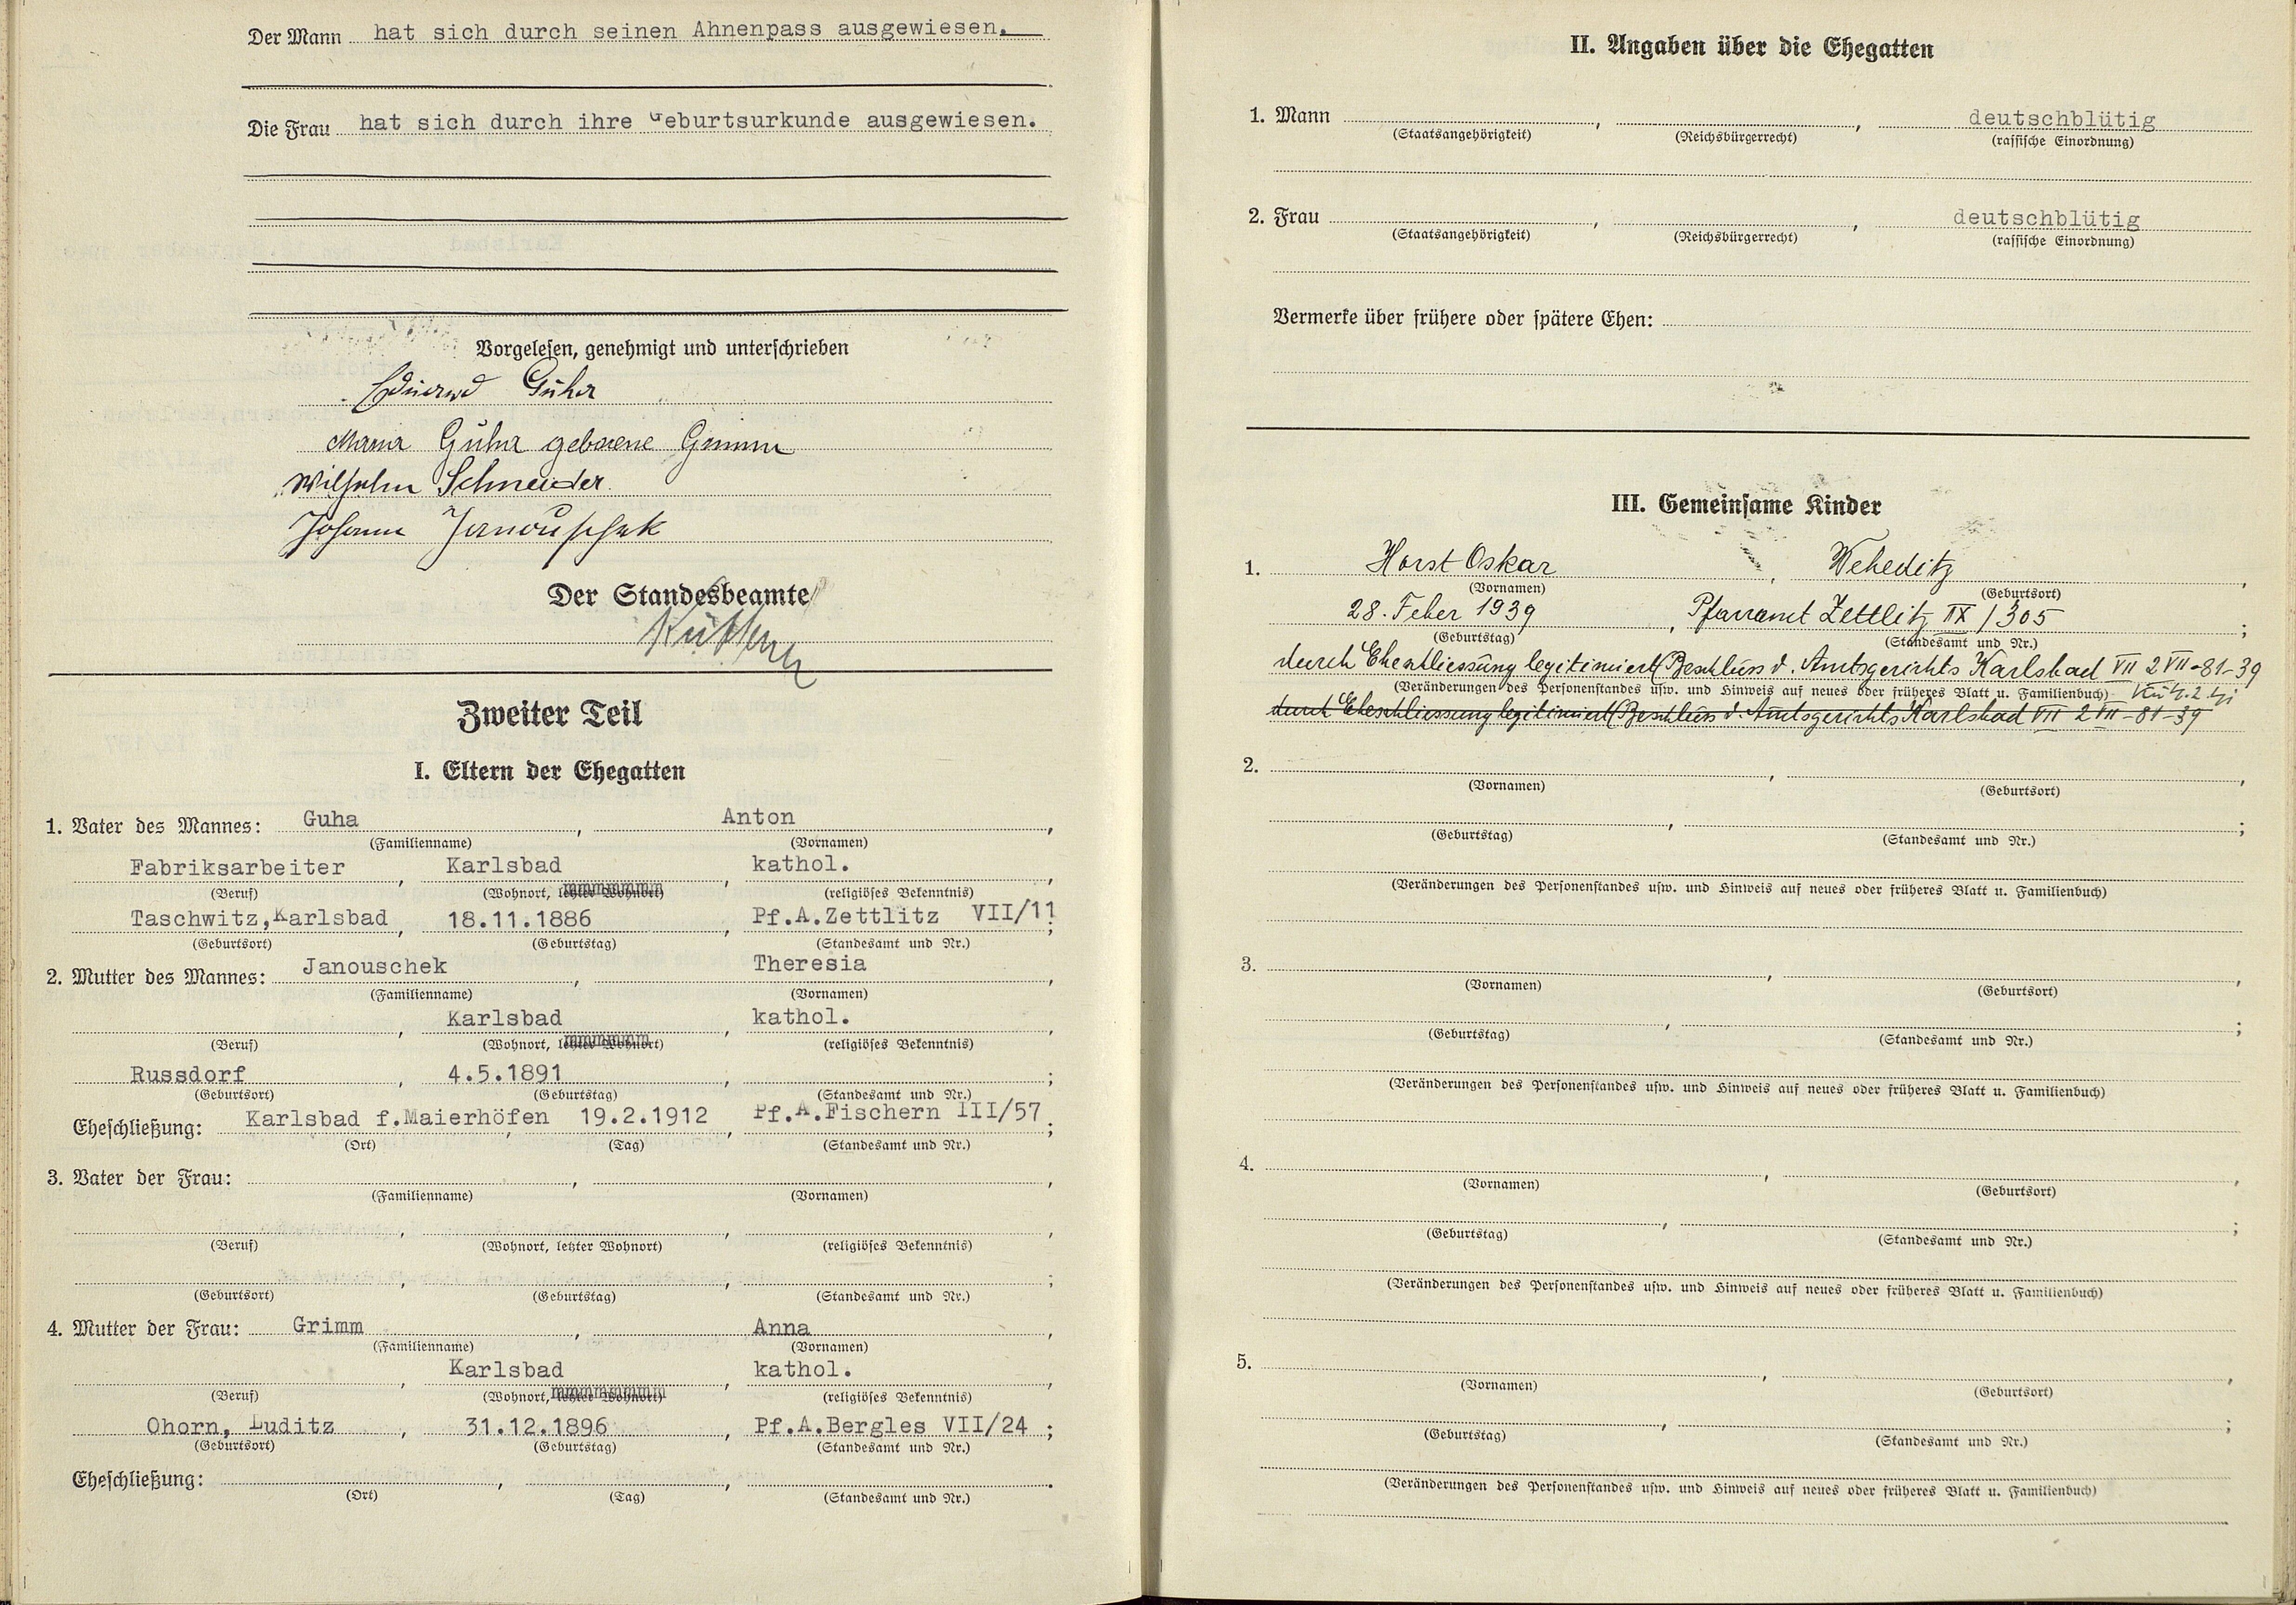 Der Mann hat sich durch seinen Ahnenpass ausgewiesen.
Die Frau hat sich durch ihre Geburtsurkunde ausgewiesen.
Vorgelesen, genehmigt und unterschrieben
Eduard Guha
Maria Guha geborene Grimm
Wilhelm Schneider
Johann Janouschek
Der Standesbeamte
Zweiter Teil
I. Eltern der Ehegatten
1. Vater des Mannes: Guha, Anton,
(Familienname) (Vornamen)
Fabriksarbeiter, Karlsbad, kathol.,
(Beruf) (Wohnort, letzter Wohnort) (religiöses Bekenntnis)
Taschwitz,Karlsbad, 18.11.1886, Pf.A.Zettlitz VII/11;
(Geburtsort) (Geburtstag) (Standesamt und Nr.)
2. Mutter des Mannes: Janouschek, Theresia,
(Familienname) (Vornamen)
, Karlsbad, kathol.,
(Beruf) (Wohnort, letzter Wohnort) (religiöses Bekenntnis)
Russdorf, 4.5.1891, ;
(Geburtsort) (Geburtstag) (Standesamt und Nr.)
Eheschließung: Karlsbad f.Maierhöfen, 19.2.1912, Pf.A.Fischern III/57;
(Ort) (Tag) (Standesamt und Nr.)
3. Vater der Frau: , ,
(Familienname) (Vornamen)
, , ,
(Beruf) (Wohnort, letzter Wohnort) (religiöses Bekenntnis)
, , ;
(Geburtsort) (Geburtstag) (Standesamt und Nr.)
4. Mutter der Frau: Grimm, Anna,
(Familienname) (Vornamen)
, Karlsbad, kathol.,
(Beruf) (Wohnort, letzter Wohnort) (religiöses Bekenntnis)
Ohorn, Luditz, 31.12.1896, Pf.A.Bergles VII/24;
(Geburtsort) (Geburtstag) (Standesamt und Nr.)
Eheschließung: , , .
(Ort) (Tag) (Standesamt und Nr.)
II. Angaben über die Ehegatten
1. Mann , , deutschblütig
(Staatsangehörigkeit) (Reichsbürgerrecht) (rassische Einordnung)
2. Frau , , deutschblütig
(Staatsangehörigkeit) (Reichsbürgerrecht) (rassische Einordnung)
Vermerke über frühere oder spätere Ehen:
III. Gemeinsame Kinder
1. Horst Oskar, Weheditz,
(Vornamen) (Geburtsort)
28. Feber 1939, Pfarramt Zettlitz IX/305;
(Geburtstag) (Standesamt und Nr.)
durch Eheschliessung legitimiert (Beschluss d. Amtsgerichts Karlsbad VII 2 VII-81-39
(Veränderungen des Personenstandes usw. und Hinweis auf neues oder früheres Blatt u. Familienbuch)
durch Eheschliessung legitimiert (Beschluss d. Amtsgerichts Karlsbad VII 2 VII-81-39
2. , ,
(Vornamen) (Geburtsort)
, ;
(Geburtstag) (Standesamt und Nr.)
(Veränderungen des Personenstandes usw. und Hinweis auf neues oder früheres Blatt u. Familienbuch)
3. , ,
(Vornamen) (Geburtsort)
, ;
(Geburtstag) (Standesamt und Nr.)
(Veränderungen des Personenstandes usw. und Hinweis auf neues oder früheres Blatt u. Familienbuch)
4. , ,
(Vornamen) (Geburtsort)
, ;
(Geburtstag) (Standesamt und Nr.)
(Veränderungen des Personenstandes usw. und Hinweis auf neues oder früheres Blatt u. Familienbuch)
5. , ,
(Vornamen) (Geburtsort)
, ;
(Geburtstag) (Standesamt und Nr.)
(Veränderungen des Personenstandes usw. und Hinweis auf neues oder früheres Blatt u. Familienbuch)